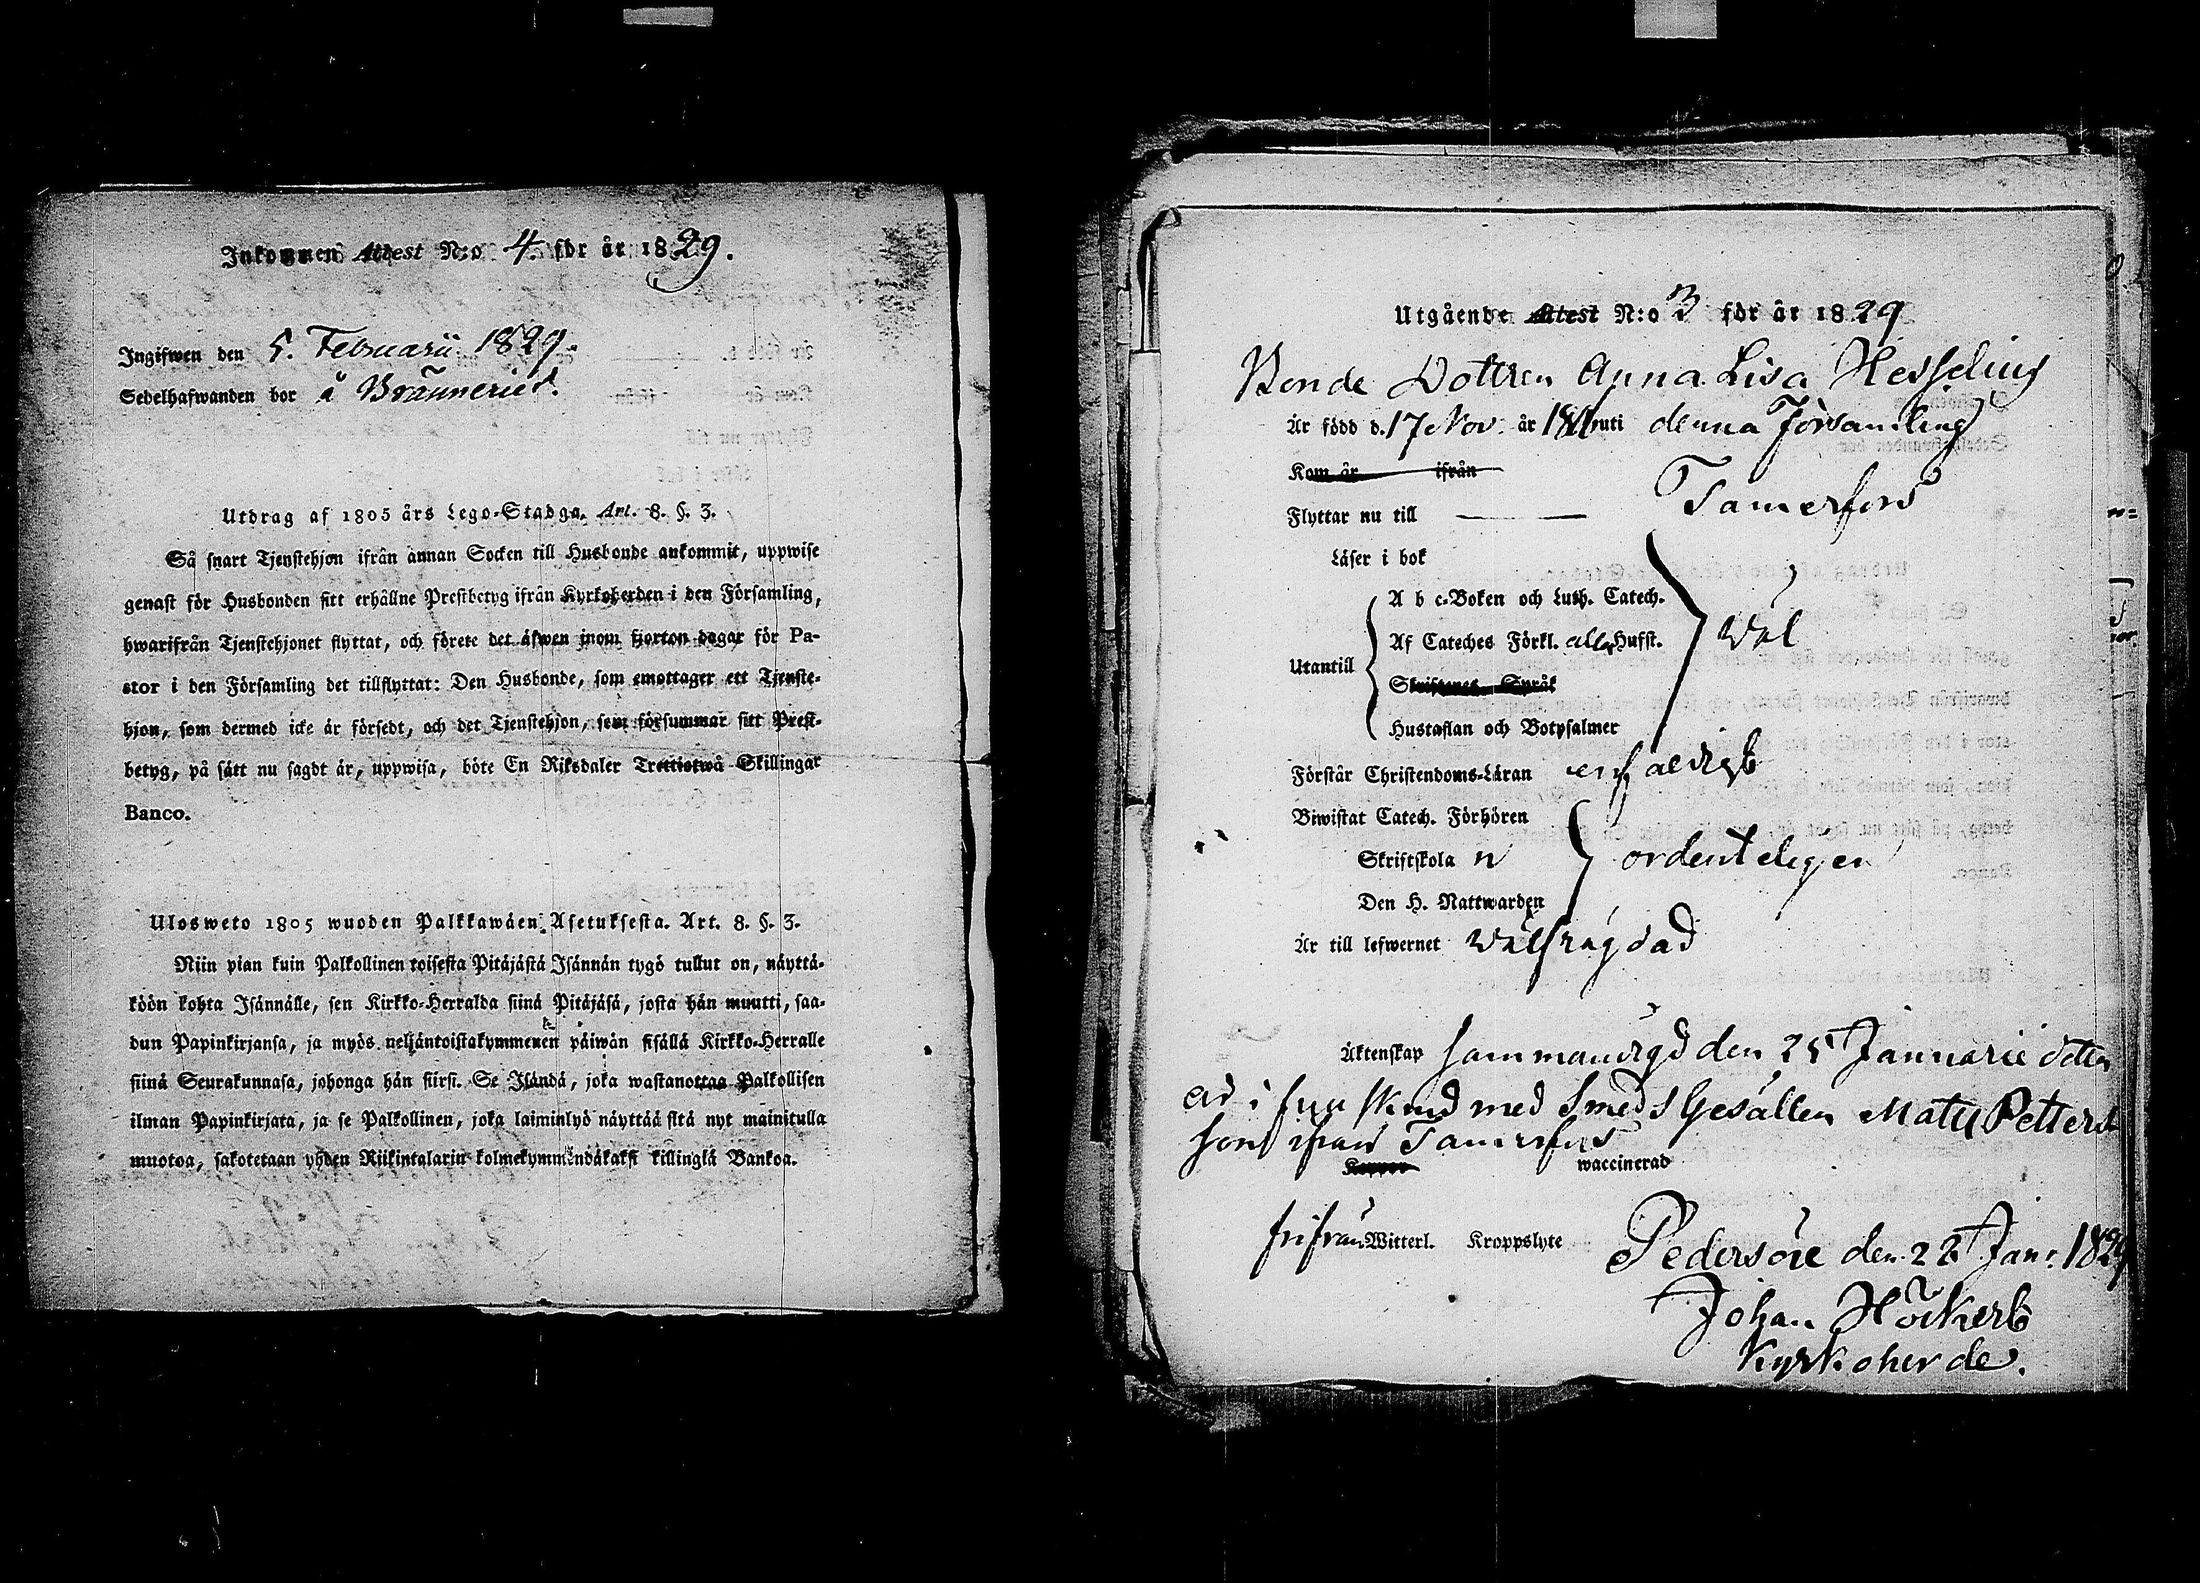 Inkommen Attest N:o 4. för år 1829.
Ingifwen den 5. Februarii 1829.
Sedelhafwanden bor å Bränneriet.
Utdrag af 1805 års Lego-Stadga. Art. 8. §. 3.
Så snart Tjenstehjon ifrån annan Socken till Husbonde ankommit, uppwise
genast för Husbonden sitt erhållne Prestbetyg ifrån Kyrkoherden i den Församling,
hwarifrån Tjenstehjonet flyttat, och förete det äfwen inom fjorton dagar för Pa-
stor i den Församling det tillflyttat: Den Husbonde, som emottager ett Tjenste-
hjon, som dermed icke är försedt, och det Tjenstehjon, som försummar sitt Prest-
betyg, på sätt nu sagdt är, uppwisa, böte En Riksdaler Trettiotwå Skillingar
Banco.
Ulosweto 1805 wuoden Palkkawäen Asetuksesta. Art. 8. §. 3.
Niin pian kuin Palkollinen toisesta Pitäjästä Isännän tygö tullut on, näyttä-
köön kohta Isännälle, sen Kirkko-Herralda siinä Pitäjäsä, josta hän muutti, saa-
dun Papinkirjansa, ja myös neljäntoistakymmenen päiwän sisällä Kirkko-Herralle
siinä Seurakunnasa, johonga hän siirsi. Se Isändä, joka wastanottaa Palkollisen
ilman Papinkirjata, ja se Palkollinen, joka laiminlyö näyttää sitä nyt mainitulla
muotoa, sakotetaan yhden Riikintalarin kolmekymmendäkaksi killingiä Bankoa.
Utgående Attest N:o 3 för år 1829
Bonde Dottren Anna Lisa Hesselius
Är född d. 17 Nov. år uti denna Församling
Kom år ifrån
Flyttar nu till Tamerfors
Läser i bok
A b c-Boken och Luth. Catech.
Af Cateches Förkl. alla Hufst.
Utantill Wäl
Skriftenes Språk
Hustaflan och Botpsalmer
Förstår Christendoms-Läran enfaldigt
Biwistat Catech. Förhören
Skriftskola n ordenteligen
Den H. Nattwarden
Är till lefwernet Wälfrägdad
Äktenskap sammanvigd den 25 Januarie
med Smeds Gesällen Matts Petters
son ifrån Tamerfors
Koppor waccinerad
fri från Witterl. Kroppslyte
Pedersöre den 28 Jan: 1829
Johan Höckert
Kyrkoherde.